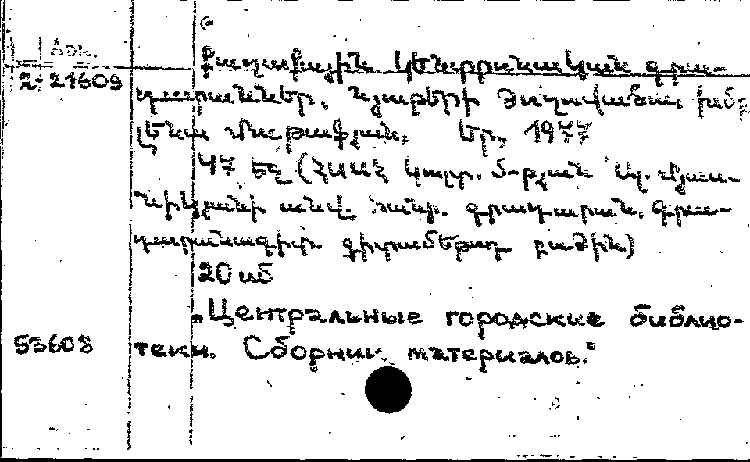 Քաղաքային կենտրոնական գրա-
2-21609 դարաններ. Նյութերի ժողովածու
Երև., 1977
47 էջ (ՀՍՍՀ կուլտ. մ-րյան Ալ. Մյաս-
նիկյանի անվ. հանր. գրադարան. Գրա-
դարանագիտ. գիտամեթոդ. բաժին)
20 սմ
„Центральные городские библио-
53608 теки. Сборник материалов."